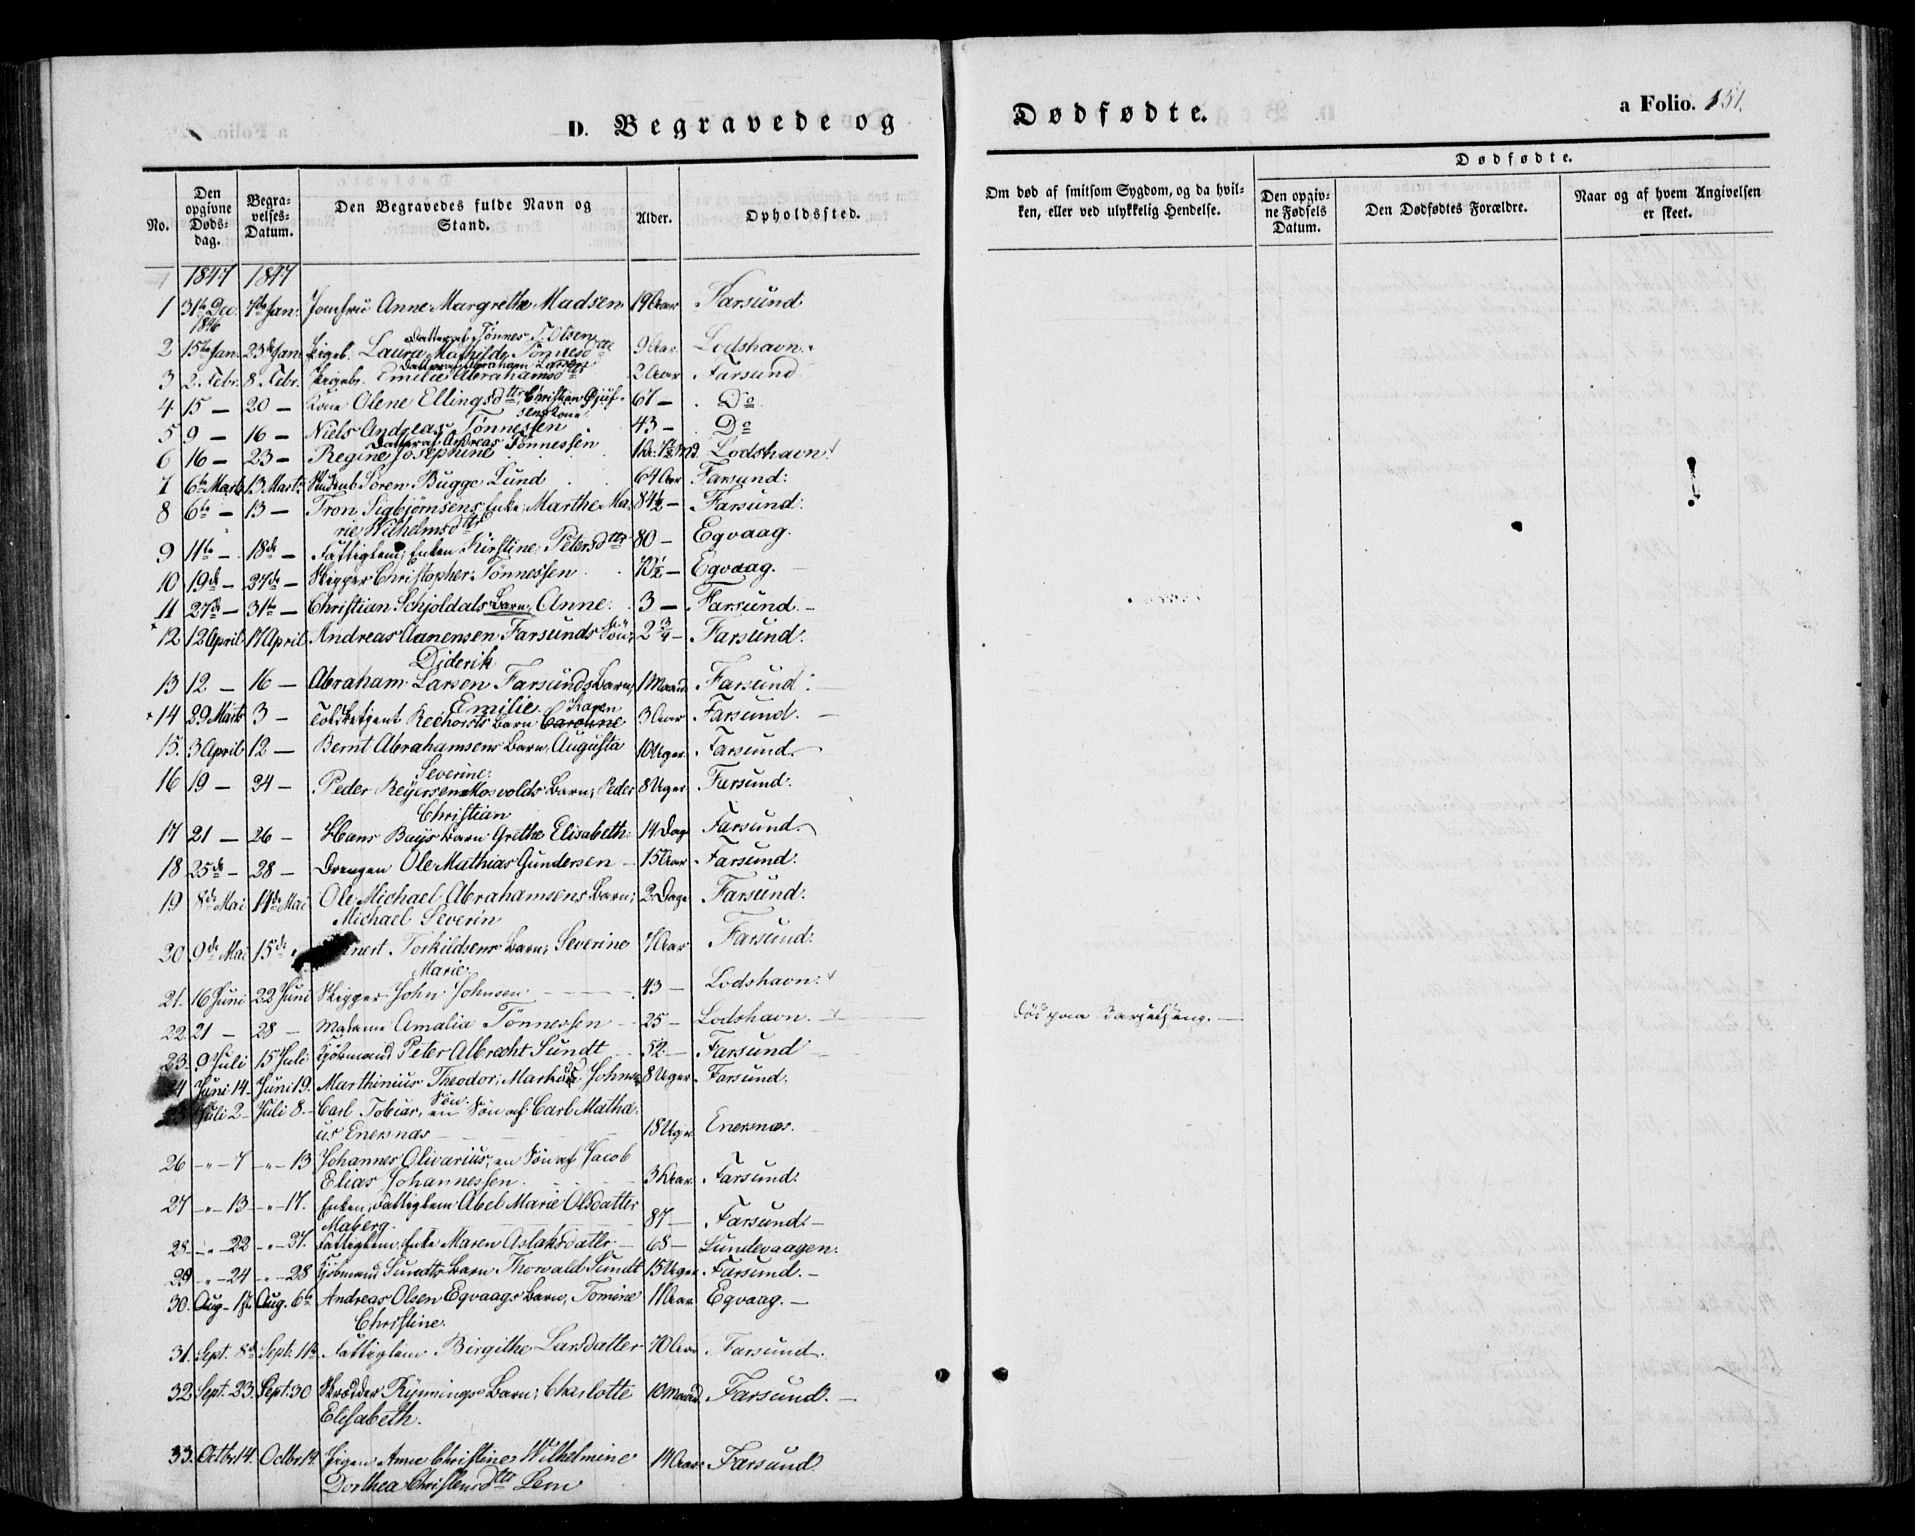 D. Begravede og Dødfødte.
a Folio. 151.
No.
Den opgivne Døds-dag.
Begra-velses-Datum.
Den Begravedes fulde Navn og Stand.
Alder.
Opholdssted.
Om død af smitsom Sygdom, og da hvil-
ken, eller ved ulykkelig Hendelse.
Dødfødte.
Den opgiv-ne Fødsels Datum.
Den Dødfødtes Forældre.
Naar og af hvem Angivelsen er skeet.
1847 1847
1 31te Dec. 1846 7de Jan: Jomfru Anne Margrethe Madsen 19 Aar Farsund
Datter af Tønnes T. Olsen
2 15te Jan: 23de Jan: Pigeb. Laura Mathilde Tønnesdtr 9 Aar. Lodshavn.
Datter af Abraham Larsen
3 2. Febr. 8 Febr. Pigeb. Emilie Abrahamsdtr 2 Aar Farsund
4 15 — 20 — Kone Olene Ellingsdtr, Christian
sens Kone 67 — Do
5 9 — 16 — Niels Andreas Tønnessen 43 — Do
Datter af Andreas Tønnessen
6 16 — 23 — Regine Josephine Lodshavn
7 6te Marts 13 Marts Student Søren Bugge Lund 64 Aar Farsund:
8 6te — 13 — Tron Sigbjørnsens Enke, Marthe Ma- 84½ — Farsund:
rie Wilhelmsdtr
9 11te — 18de — Fattiglem, Enken Kirstine Petersdtr 80 — Egvaag.
10 19de — 27de — Skipper Christopher Tønnessen 70½ — Egvaag. —
11 27de — 31te — Christian Schjoldals Barn, Anne: 3 — Farsund. —
12 12 April 17 April Andreas Aanensen Farsunds Søn, 2¾ — Farsund:
Diderik
13 12 — 16 — Abraham Larsen Farsunds Barn, 1 Maaned Farsund:
Emilie. Karen
14 29 Marts 3 — Toldbetjent Rechorsts Barn Caroline 3 Aar Farsund. —
15. 3 April 12 — Bernt Abrahamsens Barn, Augusta 10 Uger Farsund.
Severine:
16 19 — 24 — Peder Reyersen Mosvolds Barn, Peder 8 Uger Farsund:
Christian
17 21 — 26 — Hans Bays Barn Grethe Elisabeth: 14 Dage Farsund.
18 25de — 28 — Drengen Ole Mathias Gundersen 15 Aar Farsund:
19 8de Mai 14de Mai Ole Michael Abrahamsens Barn, 2 Dage Farsund:
Michael Severin
20 9de Mai 15de Torkildsens Barn, Severine 7 Aar Farsund:
Marie.
21. 16 Juni 22 Juni Skipper John Johnsen 43 — Lodshavn:
22. 21 — 28 — Madame Amalia Tønnessen 25 — Lodshavn. — Død paa Barselseng. —
23. 9 Juli 15 Juli Kjøbmand Peter Albrecht Sundt 52 — Farsund
24 Juni 14 Juni 19. Marthinius Theodor, Markus Johnsens 8 Uger Farsund.
Søn.
Juli 2 Juli 8. Carl Tobias, en Søn af Carl Matha-
us Enersnæs 18 Uger Enersnæs.
26 — " — 7 — " — 13 Johannes Olivarius, en Søn af Jacob
Elias Johannessen. 3 Aar. Farsund:
27 — " — 13 — " — 17. Enken, Fattiglem Abel Marie Olsdatter
Maberg. 87 — Farsund. —
28. — " — 22 — " — 27. Fattiglem, Enke Maren Aslaksdatter 68 — Lundevaagen.
29 — " — 24 — " — 28 Kjøbmand Sundts Barn, Thorvald Sundt 15 Uger Farsund. —
30. Aug. 1ste Aug. 6te Andreas Olsen Egvaags Barn, Tomine 11 Aar. Egvaag. —
Christine.
31. Sept. 8de Sept. 11te Fattiglem Birgithe Larsdatter 70 Aar Farsund.
32 Sept. 23. Sept. 30 Skrædder Rynnings Barn; Charlotte 10 Maaned Farsund. —
Elisabeth.
33. Octbr 14. Octbr 14 Pigen Anne Christine Wilhelmine 14 Aar: Farsund
Dorthea Christensdtr Lem